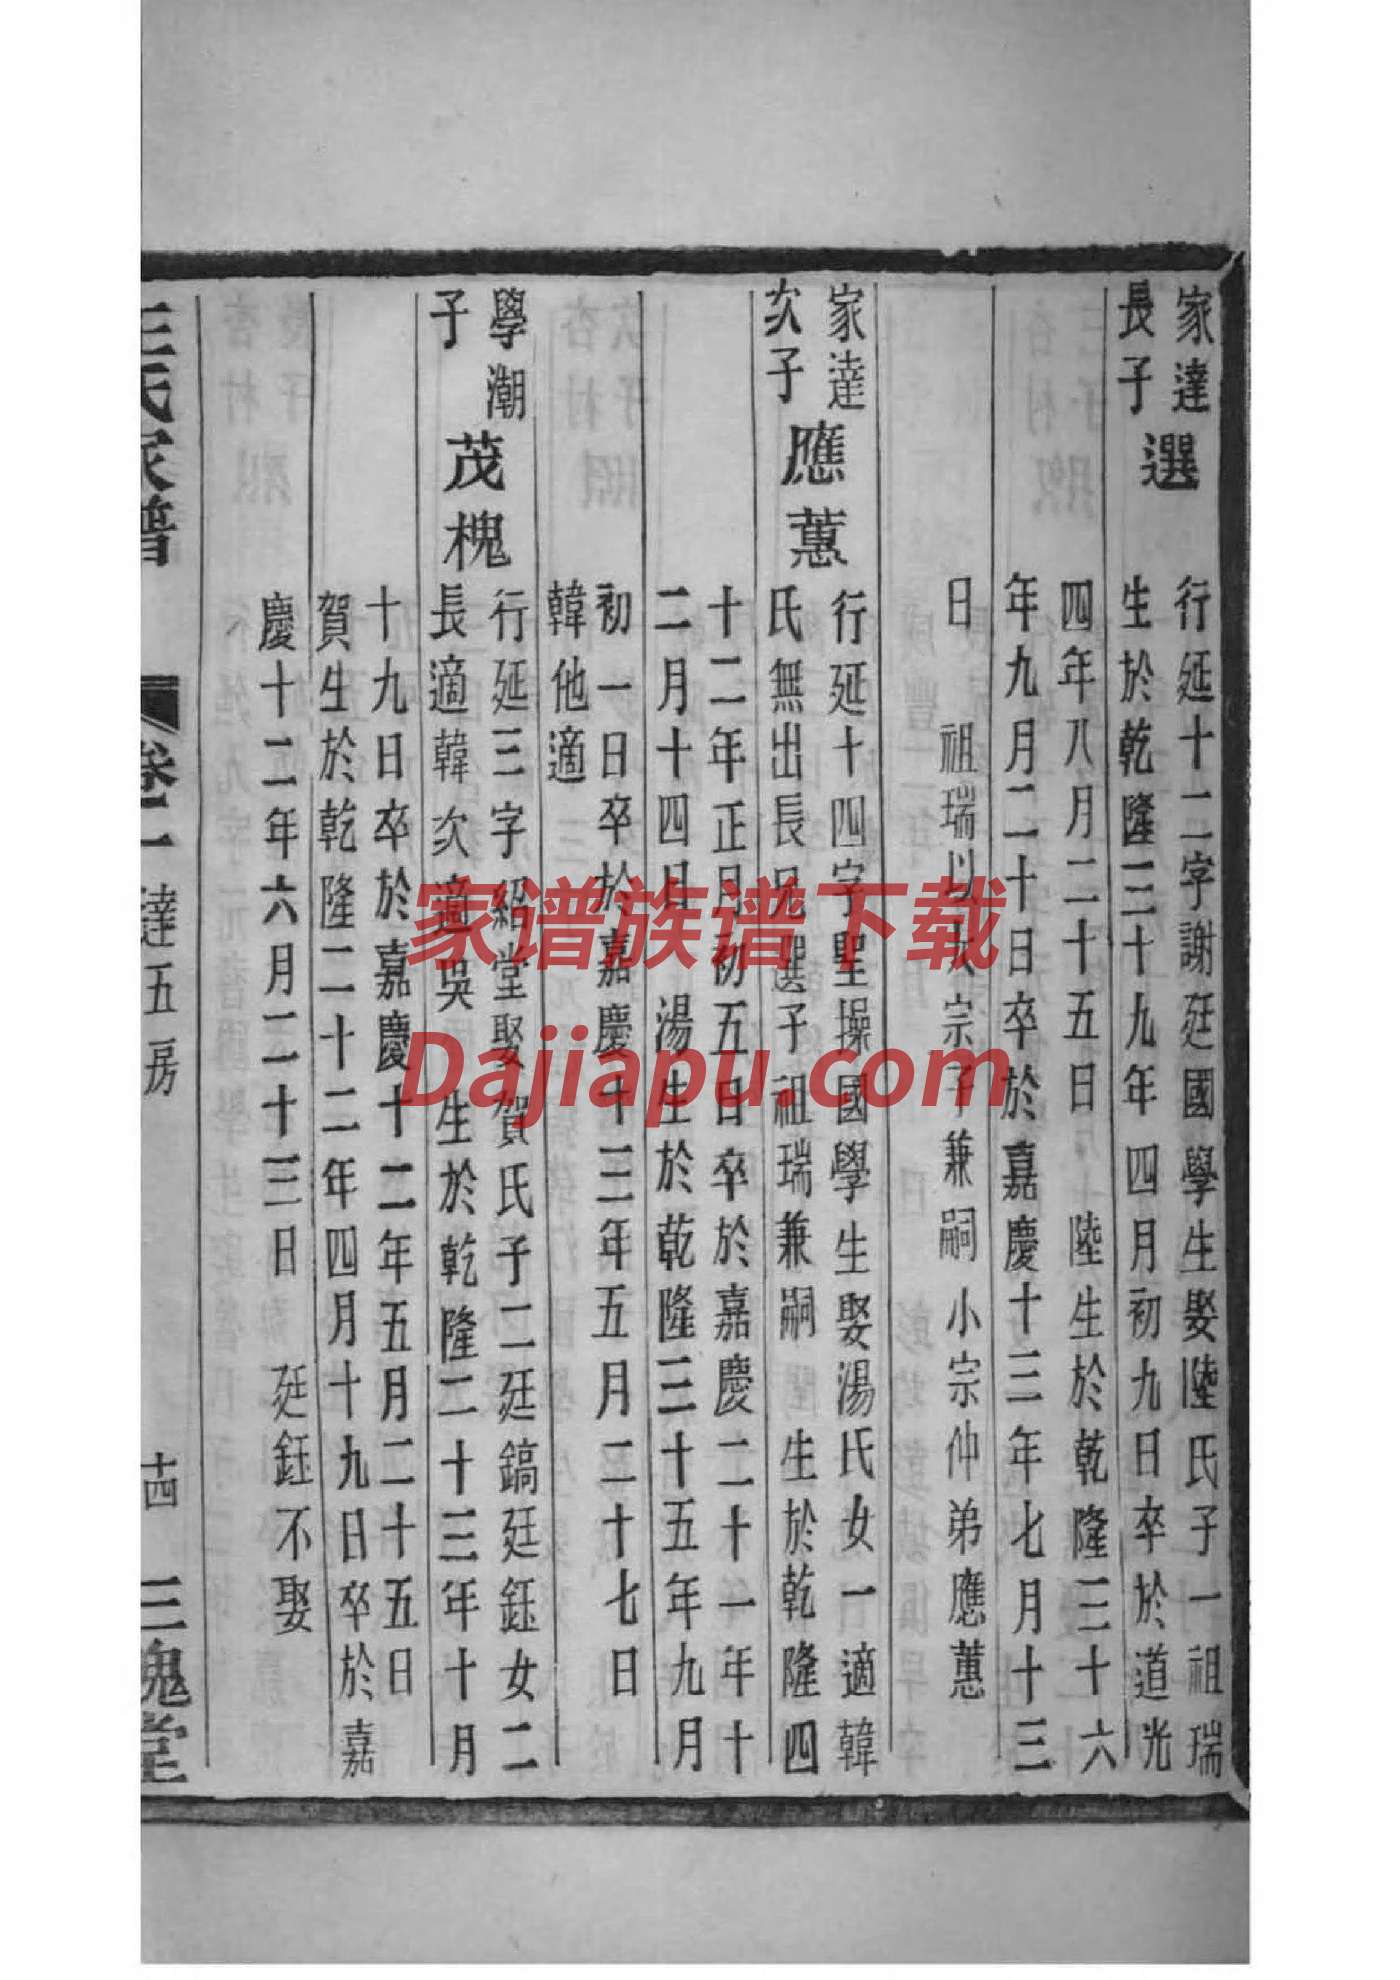 家達
長子
選
行延十二字謝廷國學生娶陸氏子一祖瑞
生於乾隆三十九年四月初九日卒於道光
四年八月二十五日　陸生於乾隆三十六
年九月二十日卒於嘉慶十三年七月十三
日　祖瑞以大宗子兼嗣小宗仲弟應蕙
家達
次子
應蕙
行延十四字聖操國學生娶湯氏女一適韓
氏無出長兄選子祖瑞兼嗣　生於乾隆四
十二年正月初五日卒於嘉慶二十一年十
二月十四日　湯生於乾隆三十五年九月
初一日卒於嘉慶十三年五月二十七日
韓他適
學潮
子
茂槐
行延三字紹堂娶賀氏子二廷鎬廷鈺女二
長適韓次適吳　生於乾隆二十三年十月
十九日卒於嘉慶十二年五月二十五日
賀生於乾隆二十二年四月十九日卒於嘉
慶十二年六月二十三日　廷鈺不娶
王氏家譜
卷一
達五房
十四
三槐堂
家谱族谱下载
Dajiapu.com